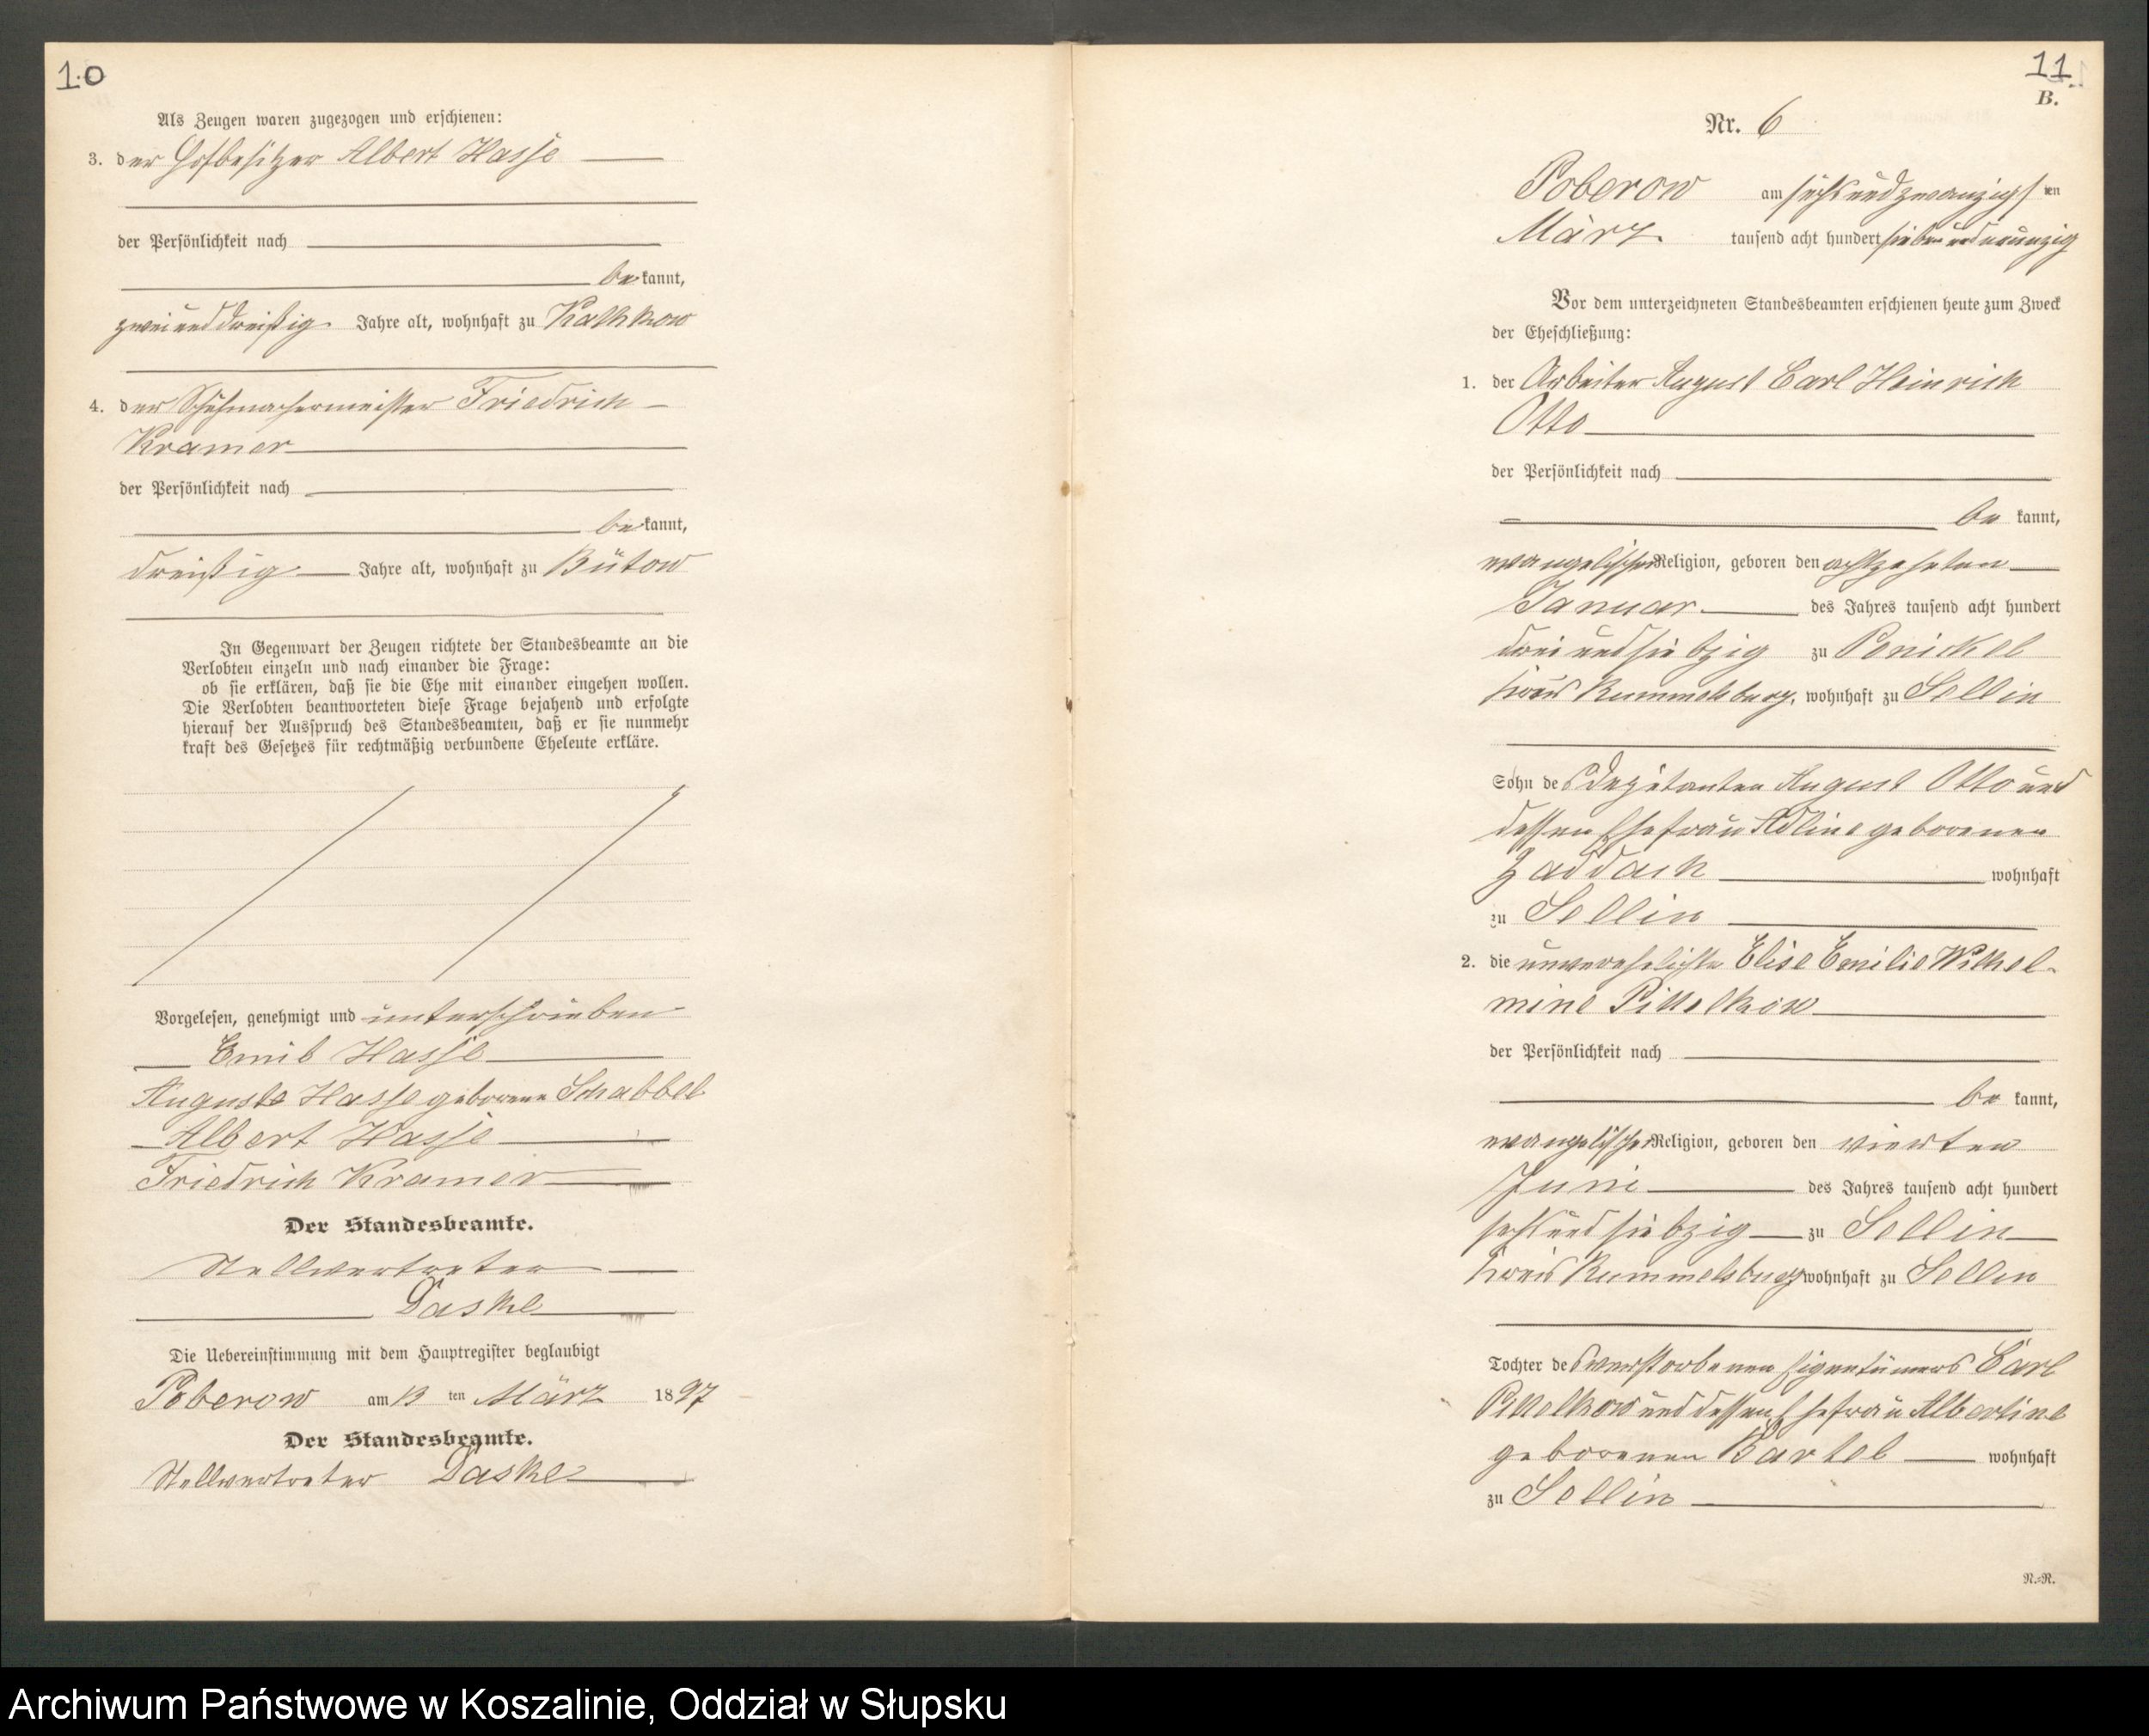 10
Als Zeugen waren zugezogen und erschienen:
3. der Hofbesitzer Albert Hasse
der Persönlichkeit nach
bekannt,
zweiunddreißig Jahre alt, wohnhaft zu Kathkow
4. der Schuhmachermeister Friedrich
Kramer
der Persönlichkeit nach
bekannt,
dreißig Jahre alt, wohnhaft zu Bütow
In Gegenwart der Zeugen richtete der Standesbeamte an die
Verlobten einzeln und nach einander die Frage:
ob sie erklären, daß sie die Ehe mit einander eingehen wollen.
Die Verlobten beantworteten diese Frage bejahend und erfolgte
hierauf der Ausspruch des Standesbeamten, daß er sie nunmehr
kraft des Gesetzes für rechtmäßig verbundene Eheleute erkläre.
Vorgelesen, genehmigt und unterschrieben
Emil Hasse
Auguste Hasse geborene Schabbel
Albert Hasse
Friedrich Kramer
Der Standesbeamte.
Stellvertreter
Daske
Die Uebereinstimmung mit dem Hauptregister beglaubigt
Poberow am 13 ten März 1897
Der Standesbeamte.
Stellvertreter Daske
11
B.
Nr. 6
Poberow am sechsundzwanzigsten
März tausend acht hundert siebenundneunzig
Vor dem unterzeichneten Standesbeamten erschienen heute zum Zweck
der Eheschließung:
1. der Arbeiter August Carl Heinrich
Otto
der Persönlichkeit nach
be kannt,
evangelischer Religion, geboren den achtzehnten
Januar des Jahres tausend acht hundert
dreiundsiebzig zu Ponickel
Kreis Rummelsburg, wohnhaft zu Sellin
Sohn des Deputanten August Otto und
dessen Ehefrau Adline geborenen
Zaddach wohnhaft
zu Sellin
2. die unverehelichte Elise Emilie Wilhel-
mine Pittelkow
der Persönlichkeit nach
be kannt,
evangelischer Religion, geboren den vierten
Juni des Jahres tausend acht hundert
sechsundsiebzig zu Sellin
Kreis Rummelsburg wohnhaft zu Sellin
Tochter des verstorbenen Eigentümers Carl
Pittelkow und dessen Ehefrau Albertine
geborenen Bartel wohnhaft
zu Sellin
N.=R.
Archiwum Państwowe w Koszalinie, Oddział w Słupsku